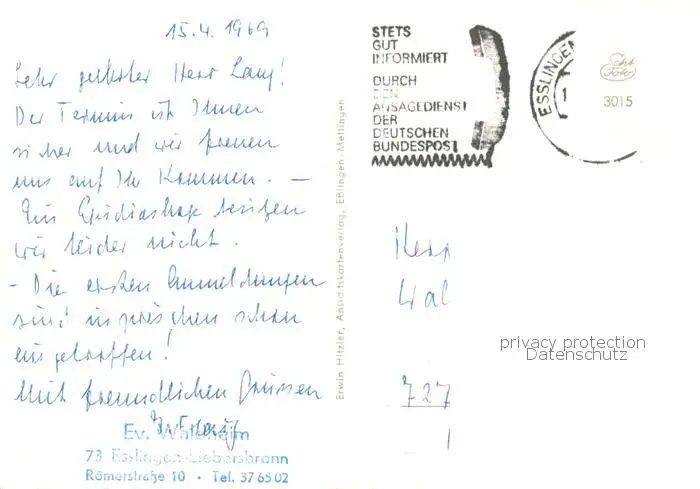 15.4.1969
Sehr geehrter Herr Lang!
Der Termin ist Ihnen
sicher und wir freuen
uns auf Ihr Kommen. —
Ein Epidiaskop besitzen
wir leider nicht.
- Die ersten Anmeldungen
sind inzwischen schon
eingetroffen!
Mit freundlichen Grüssen
Ev. Waldheim
73 Esslingen-Liebersbronn
Römerstraße 10 · Tel. 37 65 02
Erwin Hitzler, Ansichtskartenverlag, Eßlingen-Mettingen
STETS
GUT
INFORMIERT
DURCH
DEN
ANSAGEDIENST
DER
DEUTSCHEN
BUNDESPOST
ESSLINGEN
1
Echt
Foto
3015
Herr
Wal
727
privacy protection
Datenschutz